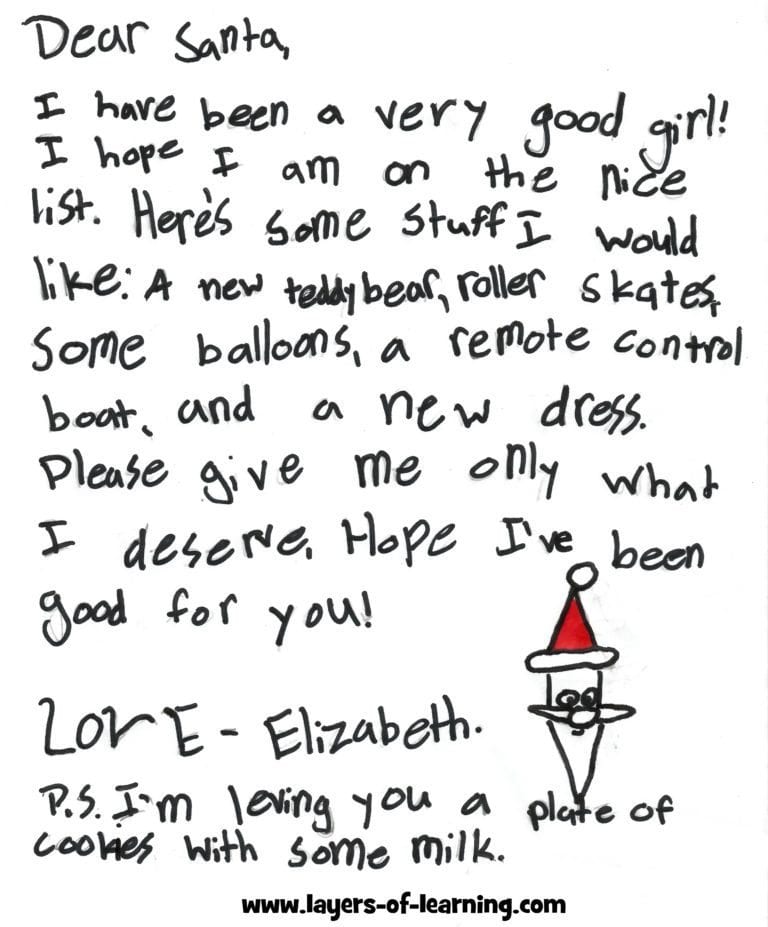 Dear Santa,
I have been a very good girl!
I hope I am on the nice
list. Here's some stuff I would
like: A new teddy bear, roller skates,
some balloons, a remote control
boat, and a new dress.
Please give me only what
I deserve. Hope I've been
good for you!
LOVE - Elizabeth.
P.S. I'm leving you a plate of
cookies with some milk.
www.layers-of-learning.com